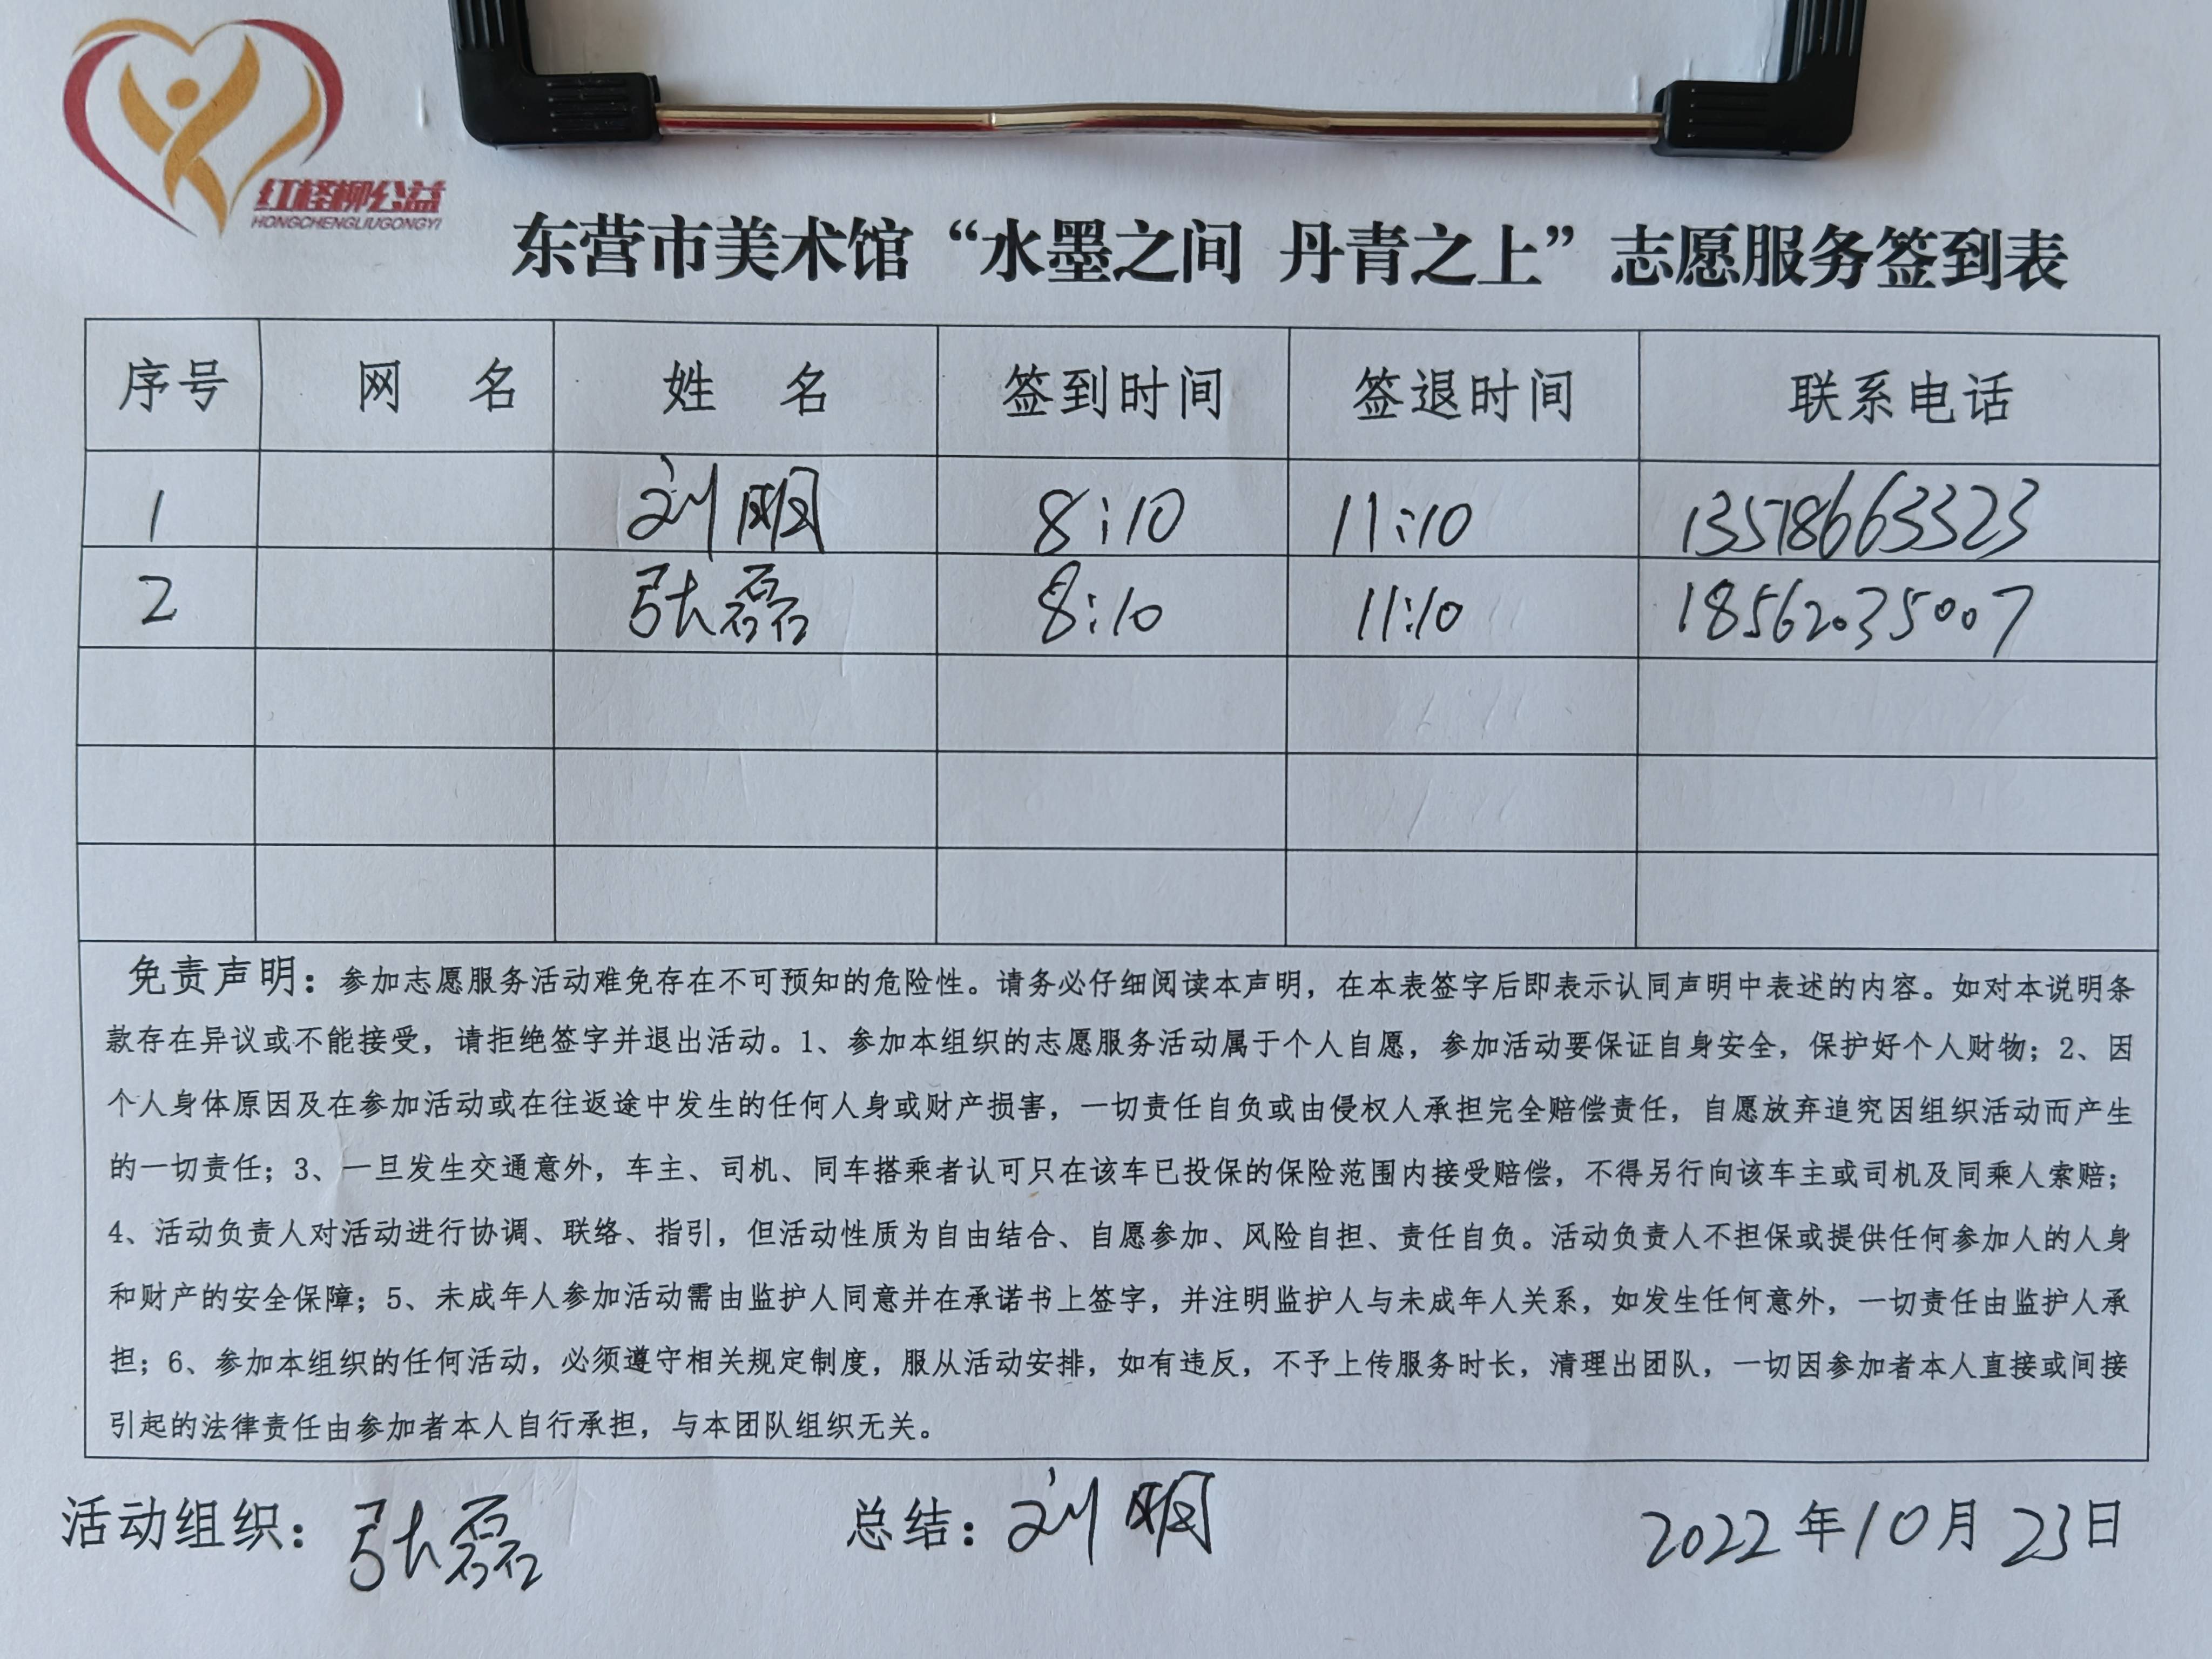 红柽柳公益
HONGCHENGLIUGONGYI
东营市美术馆“水墨之间 丹青之上”志愿服务签到表
序号 网 名 姓 名 签到时间 签退时间 联系电话
1 刘明 8:10 11:10 13518663323
2 张磊 8:10 11:10 18562035007
免责声明：参加志愿服务活动难免存在不可预知的危险性。请务必仔细阅读本声明，在本表签字后即表示认同声明中表述的内容。如对本说明条
款存在异议或不能接受，请拒绝签字并退出活动。1、参加本组织的志愿服务活动属于个人自愿，参加活动要保证自身安全，保护好个人财物；2、因
个人身体原因及在参加活动或在往返途中发生的任何人身或财产损害，一切责任自负或由侵权人承担完全赔偿责任，自愿放弃追究因组织活动而产生
的一切责任；3、一旦发生交通意外，车主、司机、同车搭乘者认可只在该车已投保的保险范围内接受赔偿，不得另行向该车主或司机及同乘人索赔；
4、活动负责人对活动进行协调、联络、指引，但活动性质为自由结合、自愿参加、风险自担、责任自负。活动负责人不担保或提供任何参加人的人身
和财产的安全保障；5、未成年人参加活动需由监护人同意并在承诺书上签字，并注明监护人与未成年人关系，如发生任何意外，一切责任由监护人承
担；6、参加本组织的任何活动，必须遵守相关规定制度，服从活动安排，如有违反，不予上传服务时长，清理出团队，一切因参加者本人直接或间接
引起的法律责任由参加者本人自行承担，与本团队组织无关。
活动组织：张磊 总结：刘明 2022年10月23日